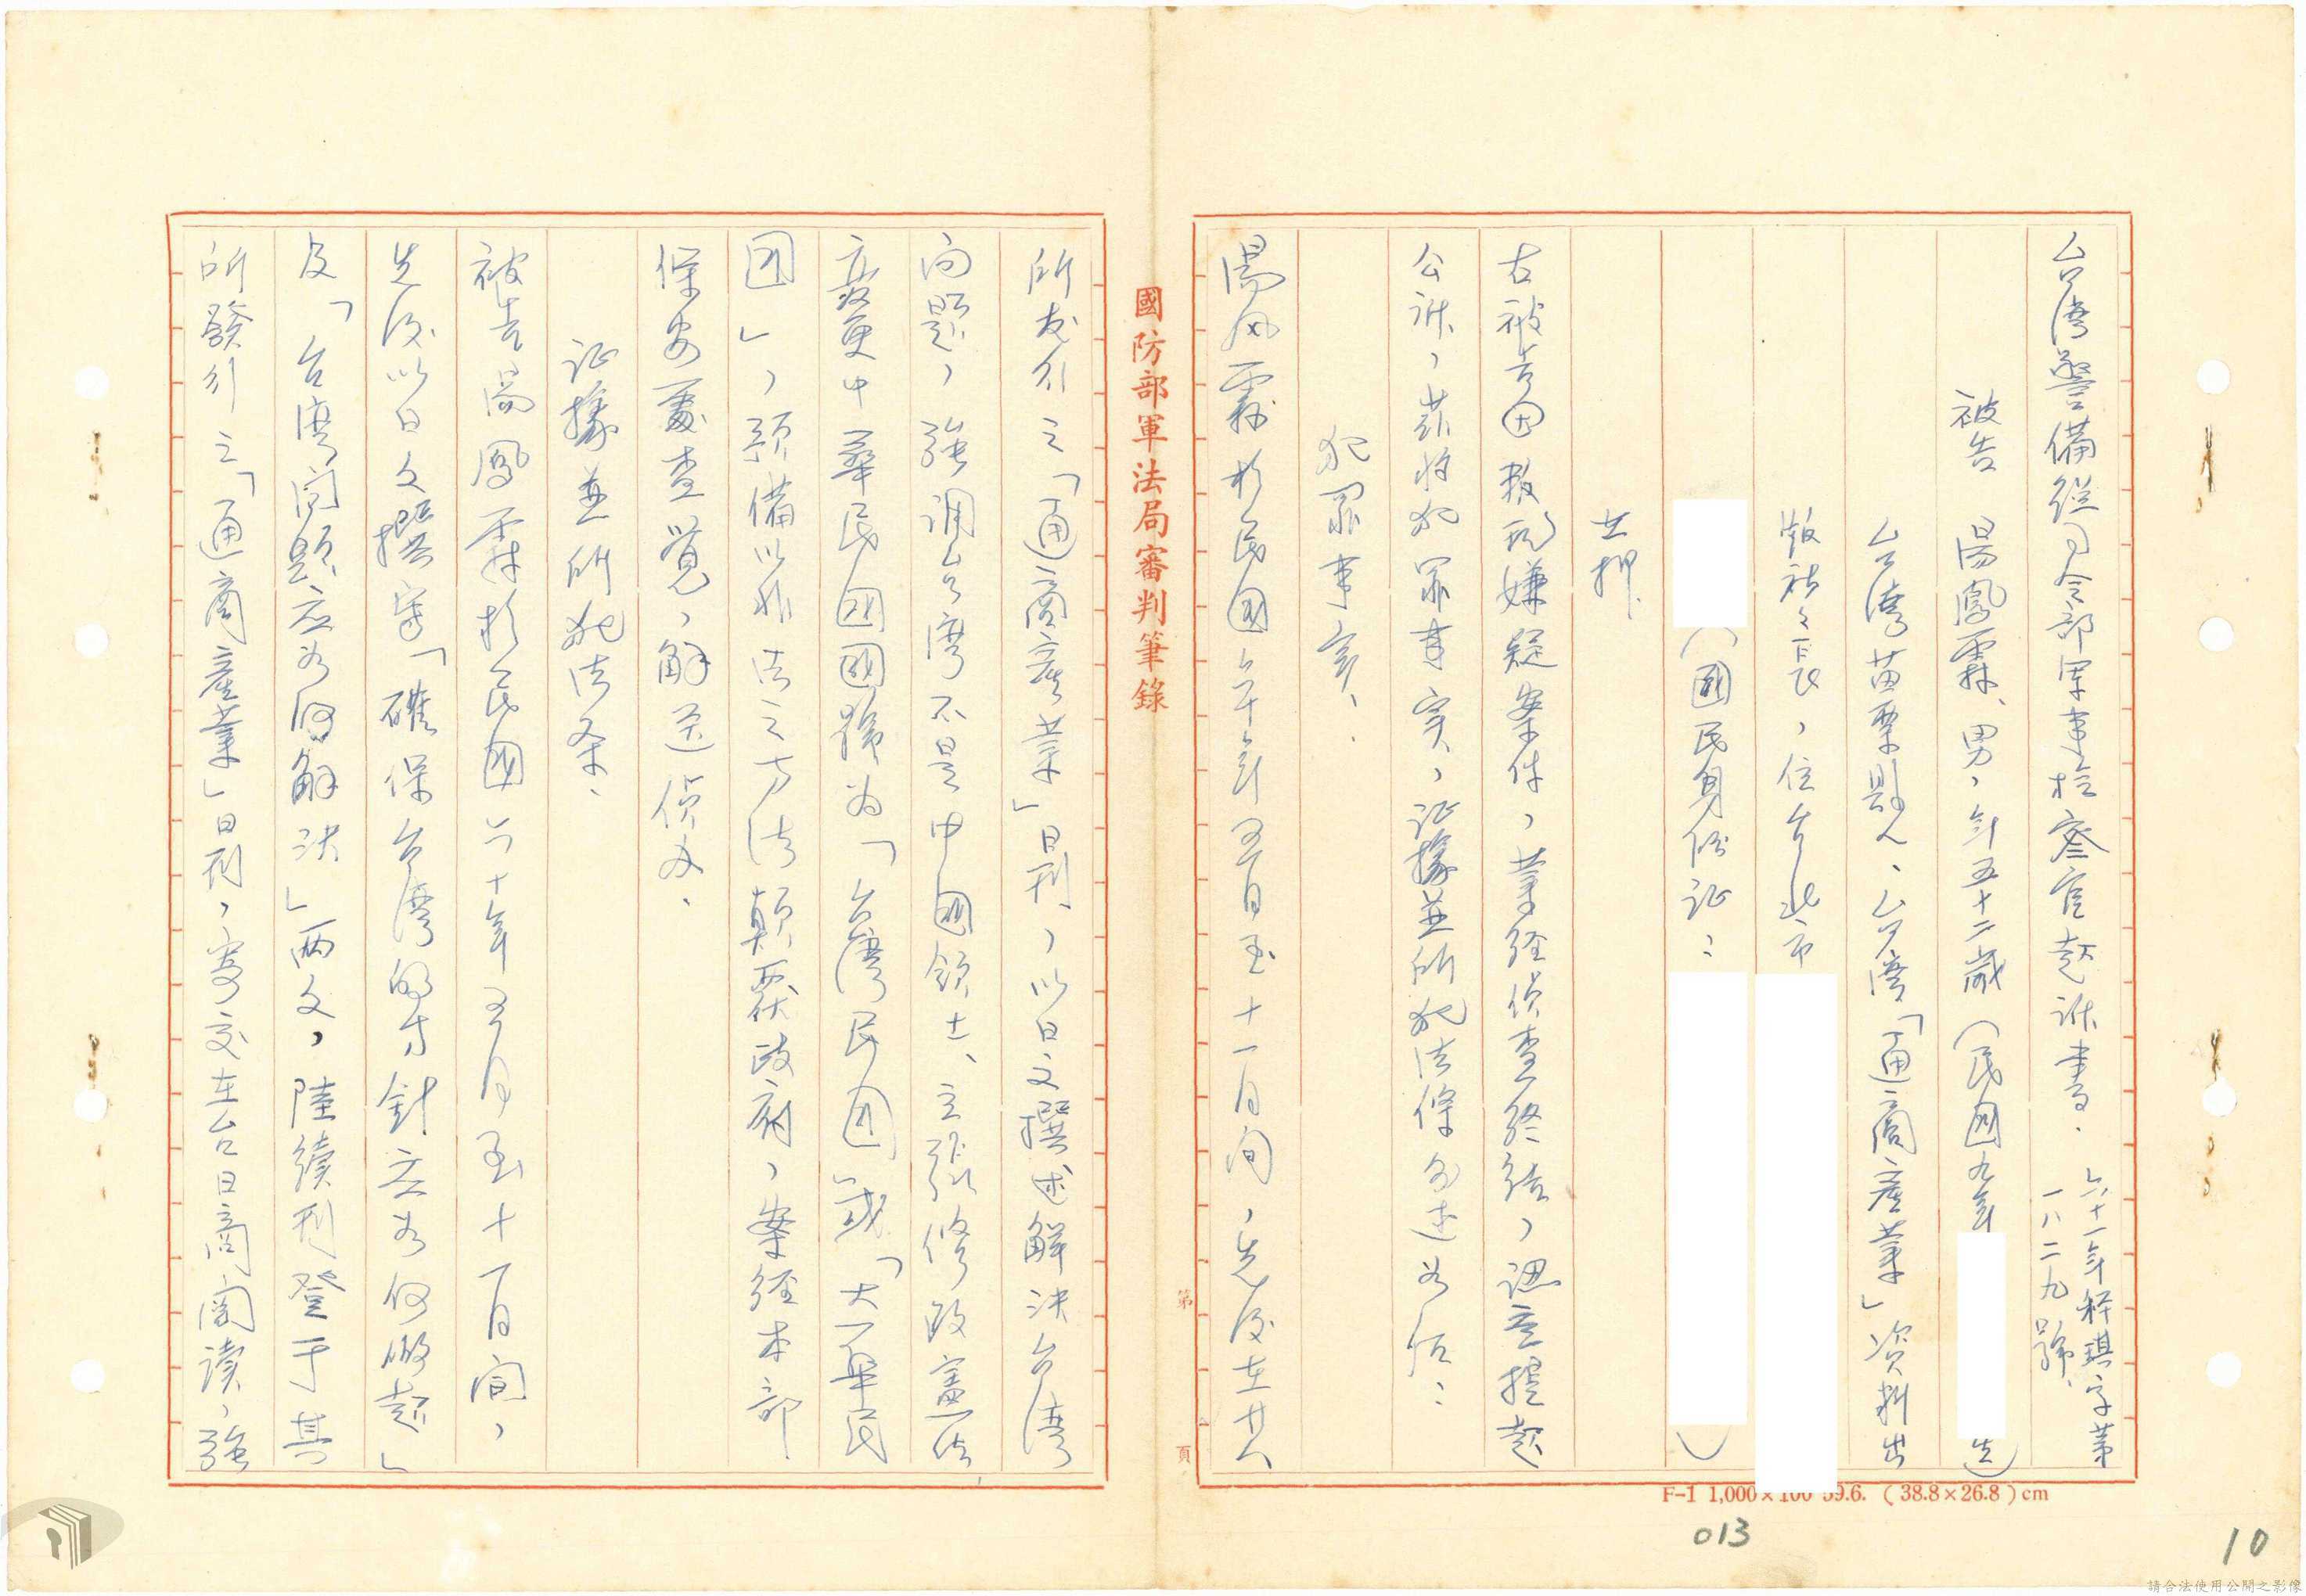 台湾警備總司令部軍事检察官起訴書. 六十一年秤琪字第
一八二九號、
被告 湯鳳霖、男，年五十二歲（民國九年 生）
台湾苗栗縣人、台湾「通商產業」资料出
版社社長，住台北市
（國民身份证：）
在押、
右被告因叛乱嫌疑案件，業经侦查终结，認应提起
公訴，茲将犯罪事实，证據並所犯法條分述如后：
犯罪事实、
湯凤霖於民國六十年五月至十一月间，先後在其
國防部軍法局審判筆錄
第
頁
所发行之「通商產業」日刊，以日文撰述解决台湾
问题，強调台湾不是中國領土、主張修改憲法
变更中華民國國號为「台湾民国」或「大華民
国」，预備以非法之方法顛覆政府，案经本部
保安處查覺，解送侦办.
证據並所犯法条、
被告湯鳳霖於民國六十年五月至十一月间，
先後以日文撰寫「確保台湾的方針应如何做起」
及「台湾问题应如何解决」两文，陸續刊登于其
所發行之「通商產業」日刊，寄交在台日商阅读，強
F-1 1,000×100 59.6. (38.8×26.8) cm
013
10
請合法使用公開之影像